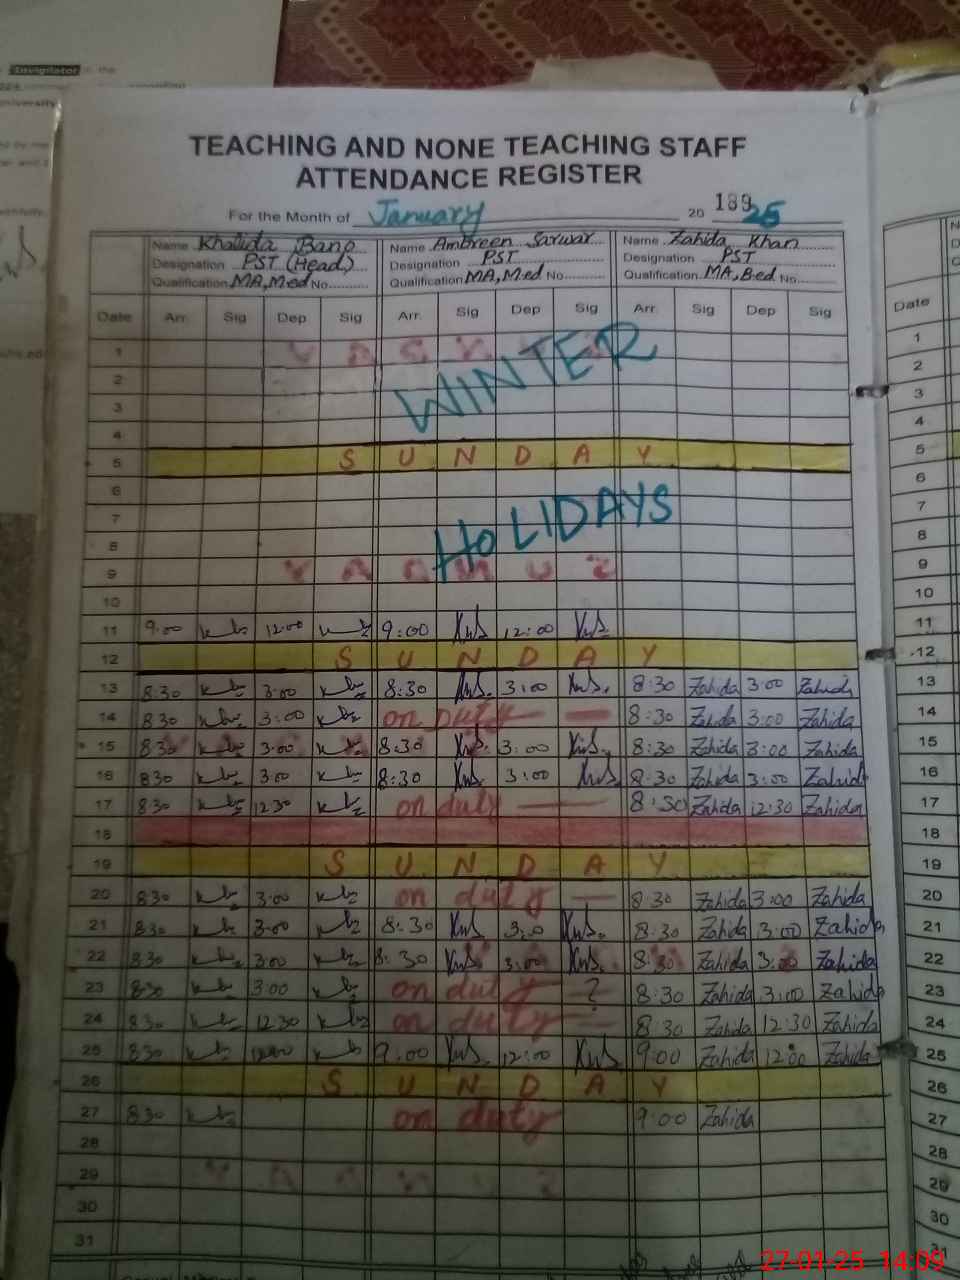 Invigilator
TEACHING AND NONE TEACHING STAFF
ATTENDANCE REGISTER
For the Month of January 20 189 25
Name Khalida Bano Name Ambreen Sarwar Name Zahida Khan
Designation PST (Head) Designation PST Designation PST
Qualification MA, M.ed No. Qualification MA, M.ed No. Qualification MA, B.ed No.
Date Arr. Sig Dep Sig Arr. Sig Dep Sig Arr. Sig Dep Sig Date
1 WINTER 1
2 2
3 3
4 4
5 SUNDAY 5
6 6
7 HOLIDAYS 7
8 8
9 9
10 10
11 9.00 12.00 9:00 12:00 11
12 SUNDAY 12
13 8.30 3.00 8:30 3:00 8:30 Zahida 3:00 Zahida 13
14 8.30 3:00 on duty 8:30 Zahida 3:00 Zahida 14
15 8.30 3.00 8:30 3:00 8:30 Zahida 3:00 Zahida 15
16 8.30 3.00 8:30 3:00 8:30 Zahida 3:00 Zahida 16
17 8.30 12.30 on duty 8:30 Zahida 12:30 Zahida 17
18 18
19 SUNDAY 19
20 8.30 3.00 on duty 8:30 Zahida 3:00 Zahida 20
21 8.30 3.00 8:30 8:30 Zahida 3:00 Zahida 21
22 8.30 3.00 8:30 3:00 8:30 Zahida 3:00 Zahida 22
23 8.30 3:00 on duty ? 8:30 Zahida 3:00 Zahida 23
24 8.30 12.30 on duty 8:30 Zahida 12:30 Zahida 24
25 8.30 9:00 12:00 9:00 Zahida 12:00 Zahida 25
26 SUNDAY 26
27 8.30 on duty 9:00 Zahida 27
28 28
29 29
30 30
31 31
27-01-25 14:09